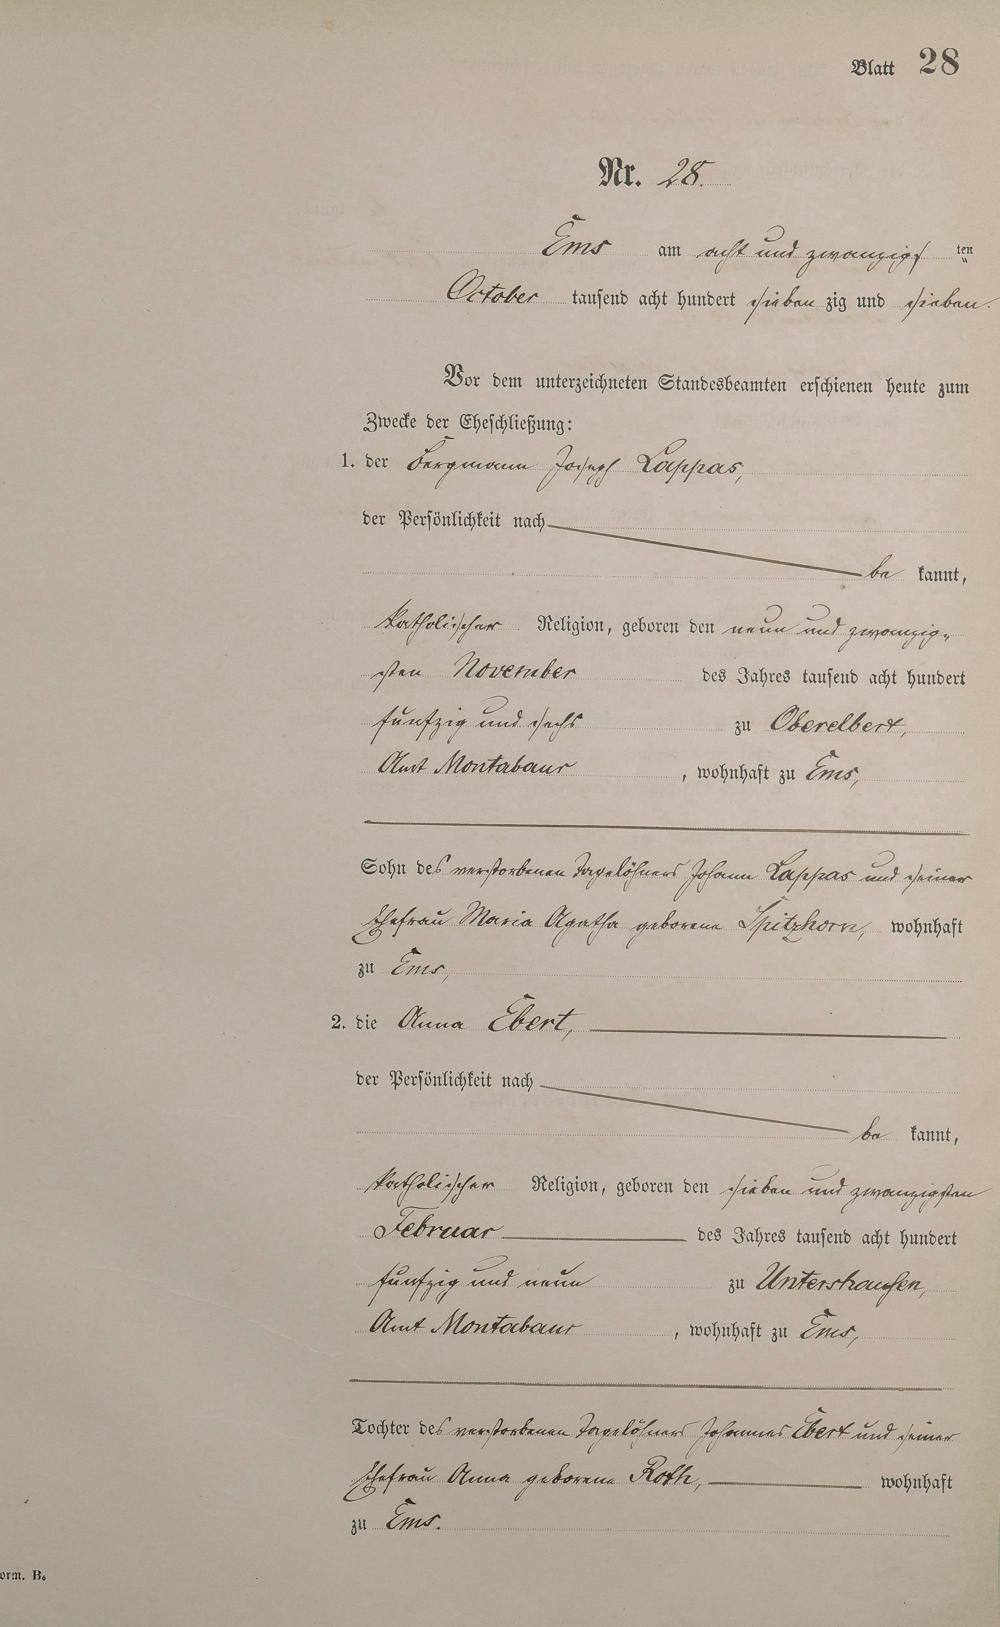 Blatt 28
Nr. 28.
Ems am acht und zwanzigs ten
October tausend acht hundert sieben zig und sieben.
Vor dem unterzeichneten Standesbeamten erschienen heute zum
Zwecke der Eheschließung:
1. der Bergmann Joseph Lappas,
der Persönlichkeit nach
be kannt,
katholischer Religion, geboren den neun und zwanzig-
sten November des Jahres tausend acht hundert
funfzig und sechs zu Oberelbert,
Amt Montabaur, wohnhaft zu Ems,
Sohn des verstorbenen Tagelöhners Johann Lappas und seiner
Ehefrau Maria Agatha geborene Spitzhorn, wohnhaft
zu Ems,
2. die Anna Ebert,
der Persönlichkeit nach
be kannt,
katholischer Religion, geboren den sieben und zwanzigsten
Februar des Jahres tausend acht hundert
funfzig und neun zu Untershausen,
Amt Montabaur, wohnhaft zu Ems,
Tochter des verstorbenen Tagelöhners Johannes Ebert und seiner
Ehefrau Anna geborene Roth, wohnhaft
zu Ems.
orm. B.